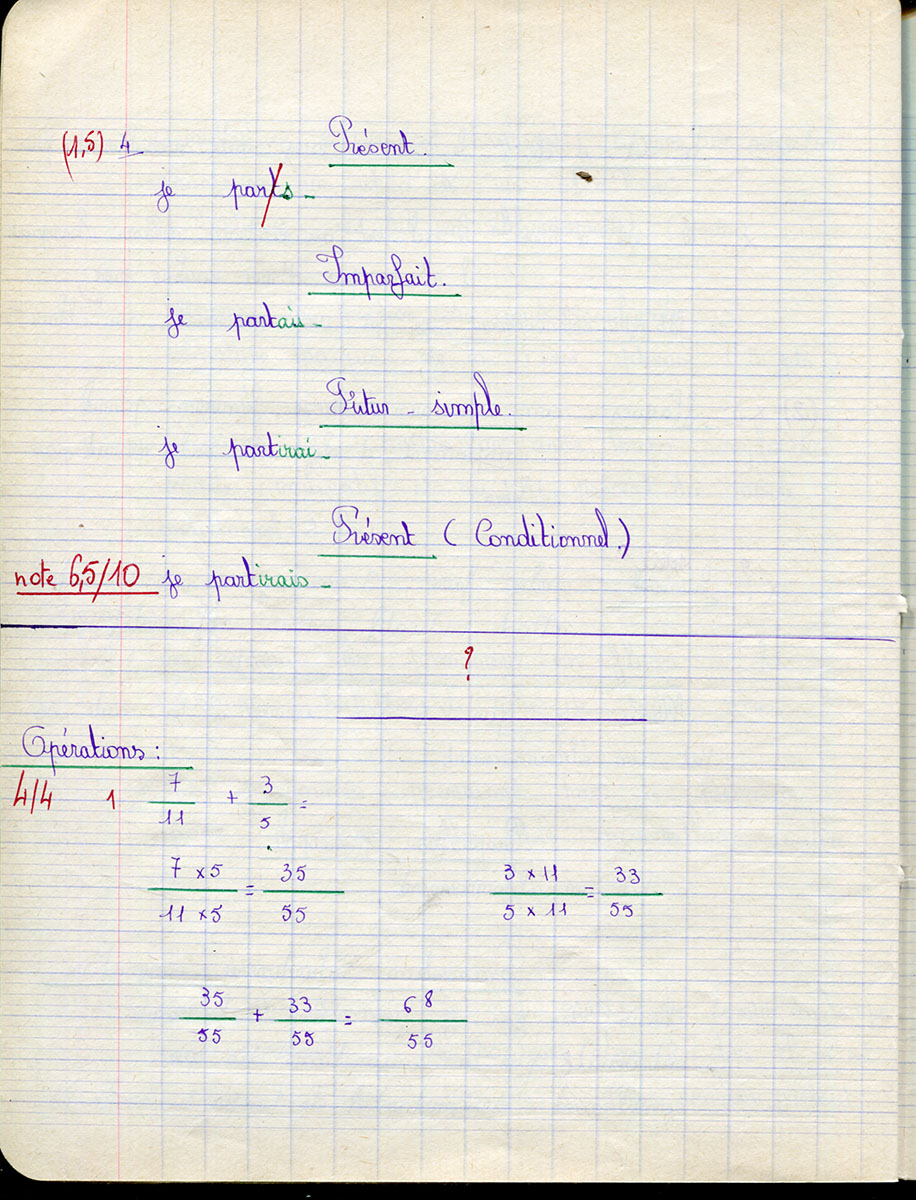 (1,5) 4 Présent.
je parts -
Imparfait.
je partais -
Futur - simple.
je partirai -
Présent (Conditionnel.)
note 6,5/10 je partirais -
?
Opérations :
4/4 1 7/11 + 3/5 =
7 x 5 / 11 x 5 = 35/55 3 x 11 / 5 x 11 = 33/55
35/55 + 33/55 = 68/55